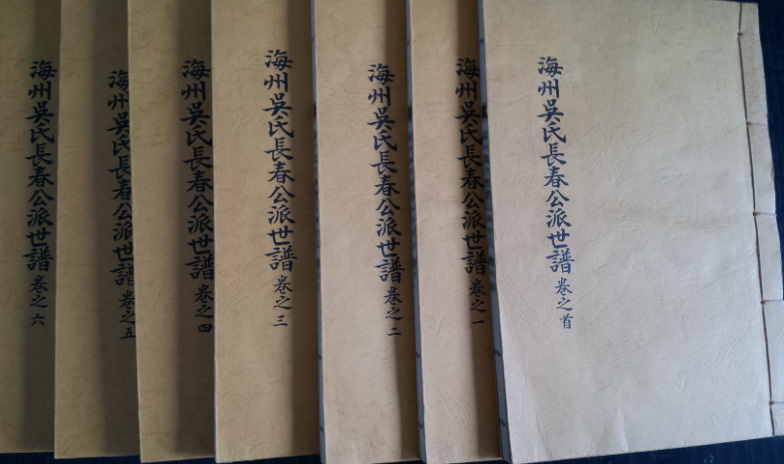 海州吳氏長春公派世譜 卷之首
海州吳氏長春公派世譜 卷之一
海州吳氏長春公派世譜 卷之二
海州吳氏長春公派世譜 卷之三
海州吳氏長春公派世譜 卷之四
海州吳氏長春公派世譜 卷之五
海州吳氏長春公派世譜 卷之六